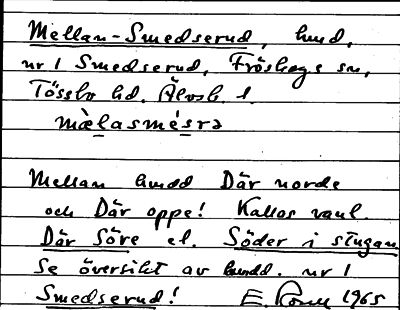 Mellan-Smedserud, hmd,
nr 1 Smedserud, Fröskogs sn,
Tössbo hd. Älvsb. l.
mæ̀lasmésrə
Mellan hmdd Där norde
och Där oppe! Kallas vanl.
Där Söre el. Söder i stugan
Se översikt av hmdd. nr 1
Smedserud! E. 1965